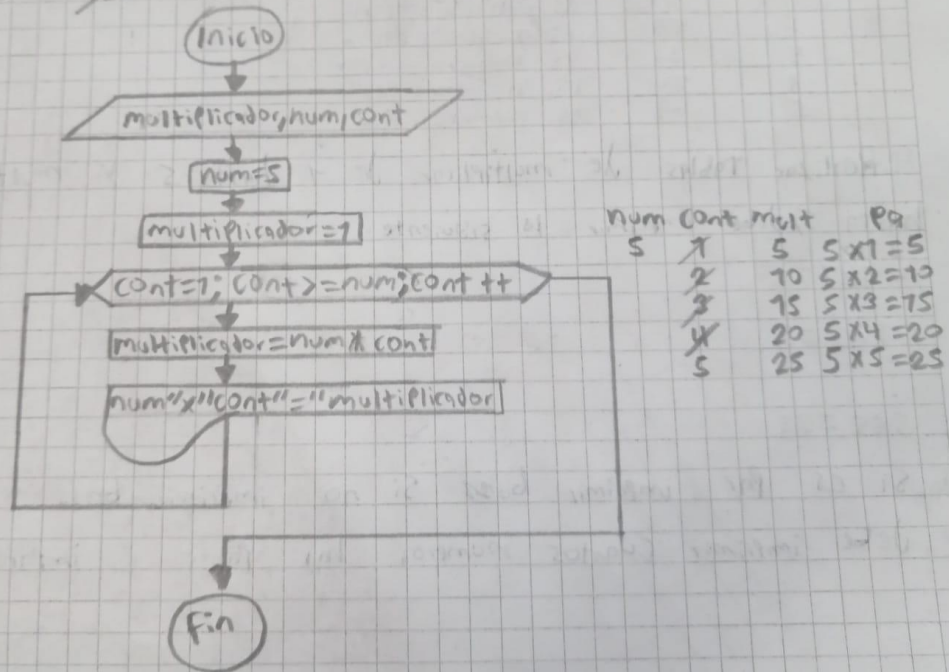 Inicio
multiplicador, num, cont
num=5
multiplicador=1
cont=1; cont>=num; cont ++
multiplicador=num * cont
num"x"cont"="multiplicador
Fin
num cont mult pa
5 1 5 5x1=5
2 10 5x2=10
3 15 5x3=15
4 20 5x4=20
5 25 5x5=25